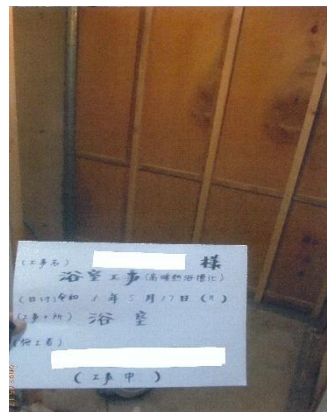 (工事名) 様
浴室工事(高断熱浴槽化)
(日付)令和 1年5月17日( )
(工事ヶ所) 浴室
(施工者)
(工事中)